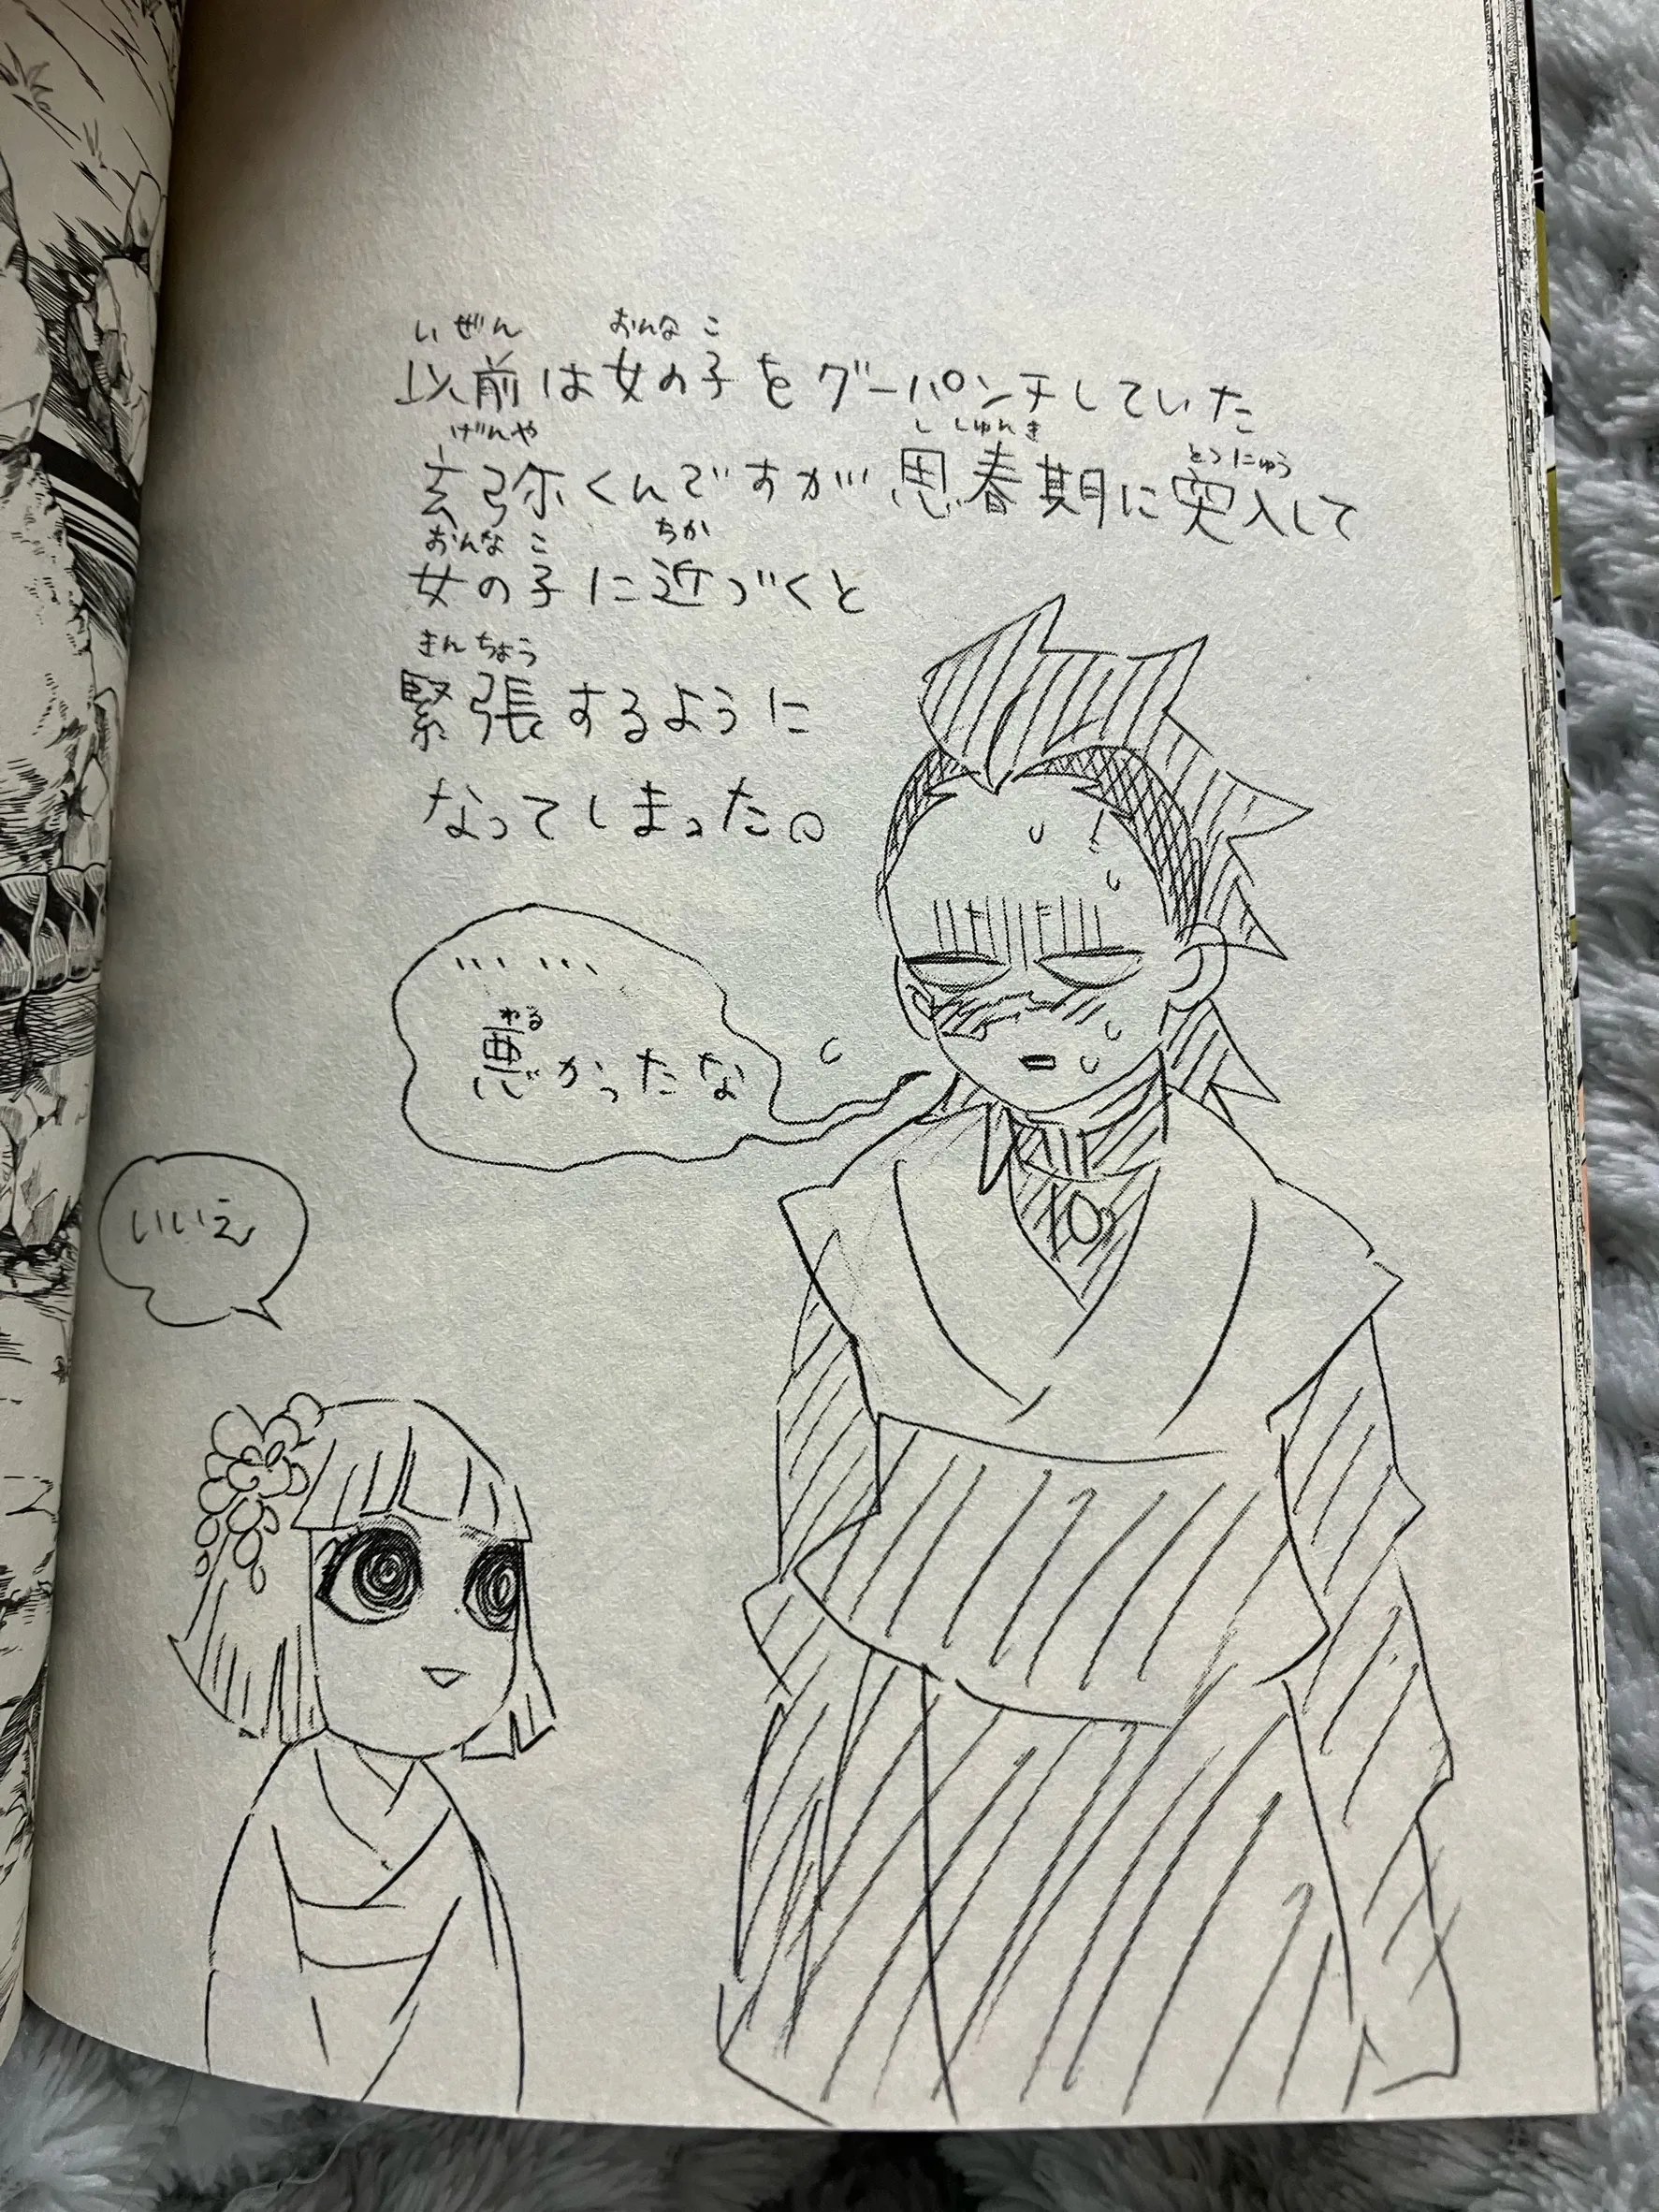 以前は女の子をグーパンチしていた
玄弥くんですが思春期に突入して
女の子に近づくと
緊張するように
なってしまった。
……
悪かったな
いいえ